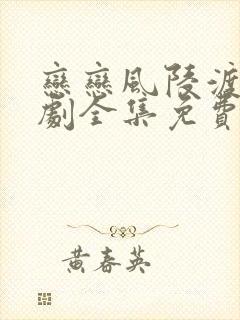 戀戀風陵渡
劇全集免費
黃春英